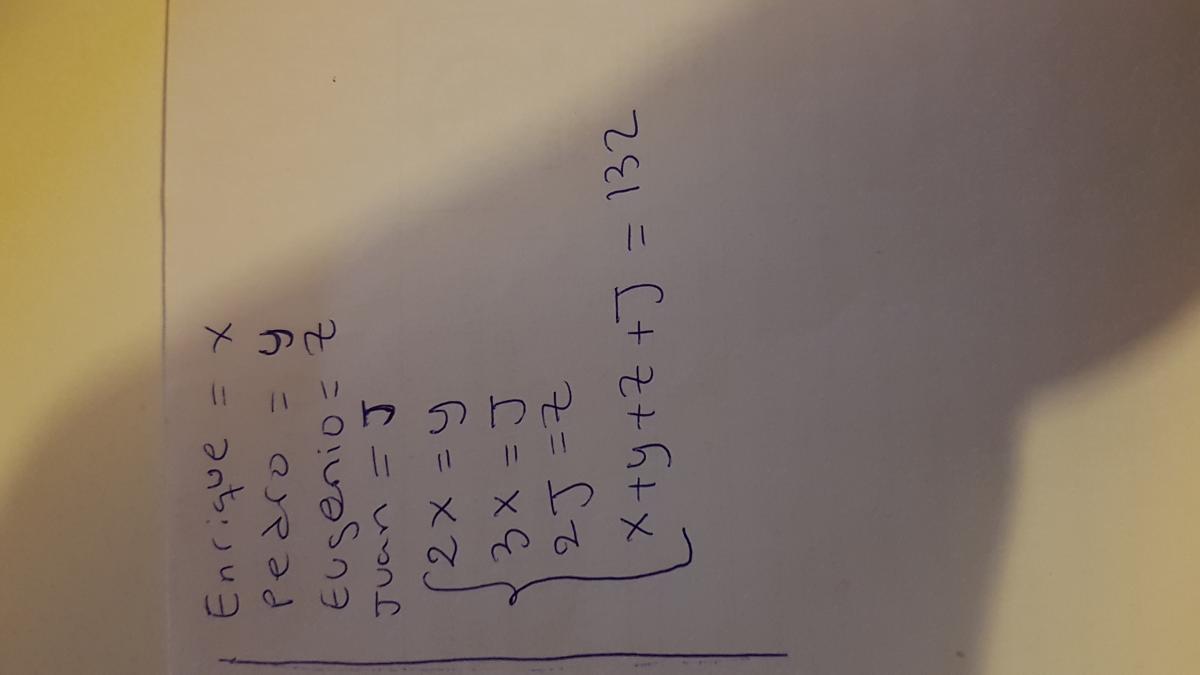 Enrique = x
Pedro = y
Eugenio = z
Juan = J
2x = y
3x = J
2J = z
x + y + z + J = 132